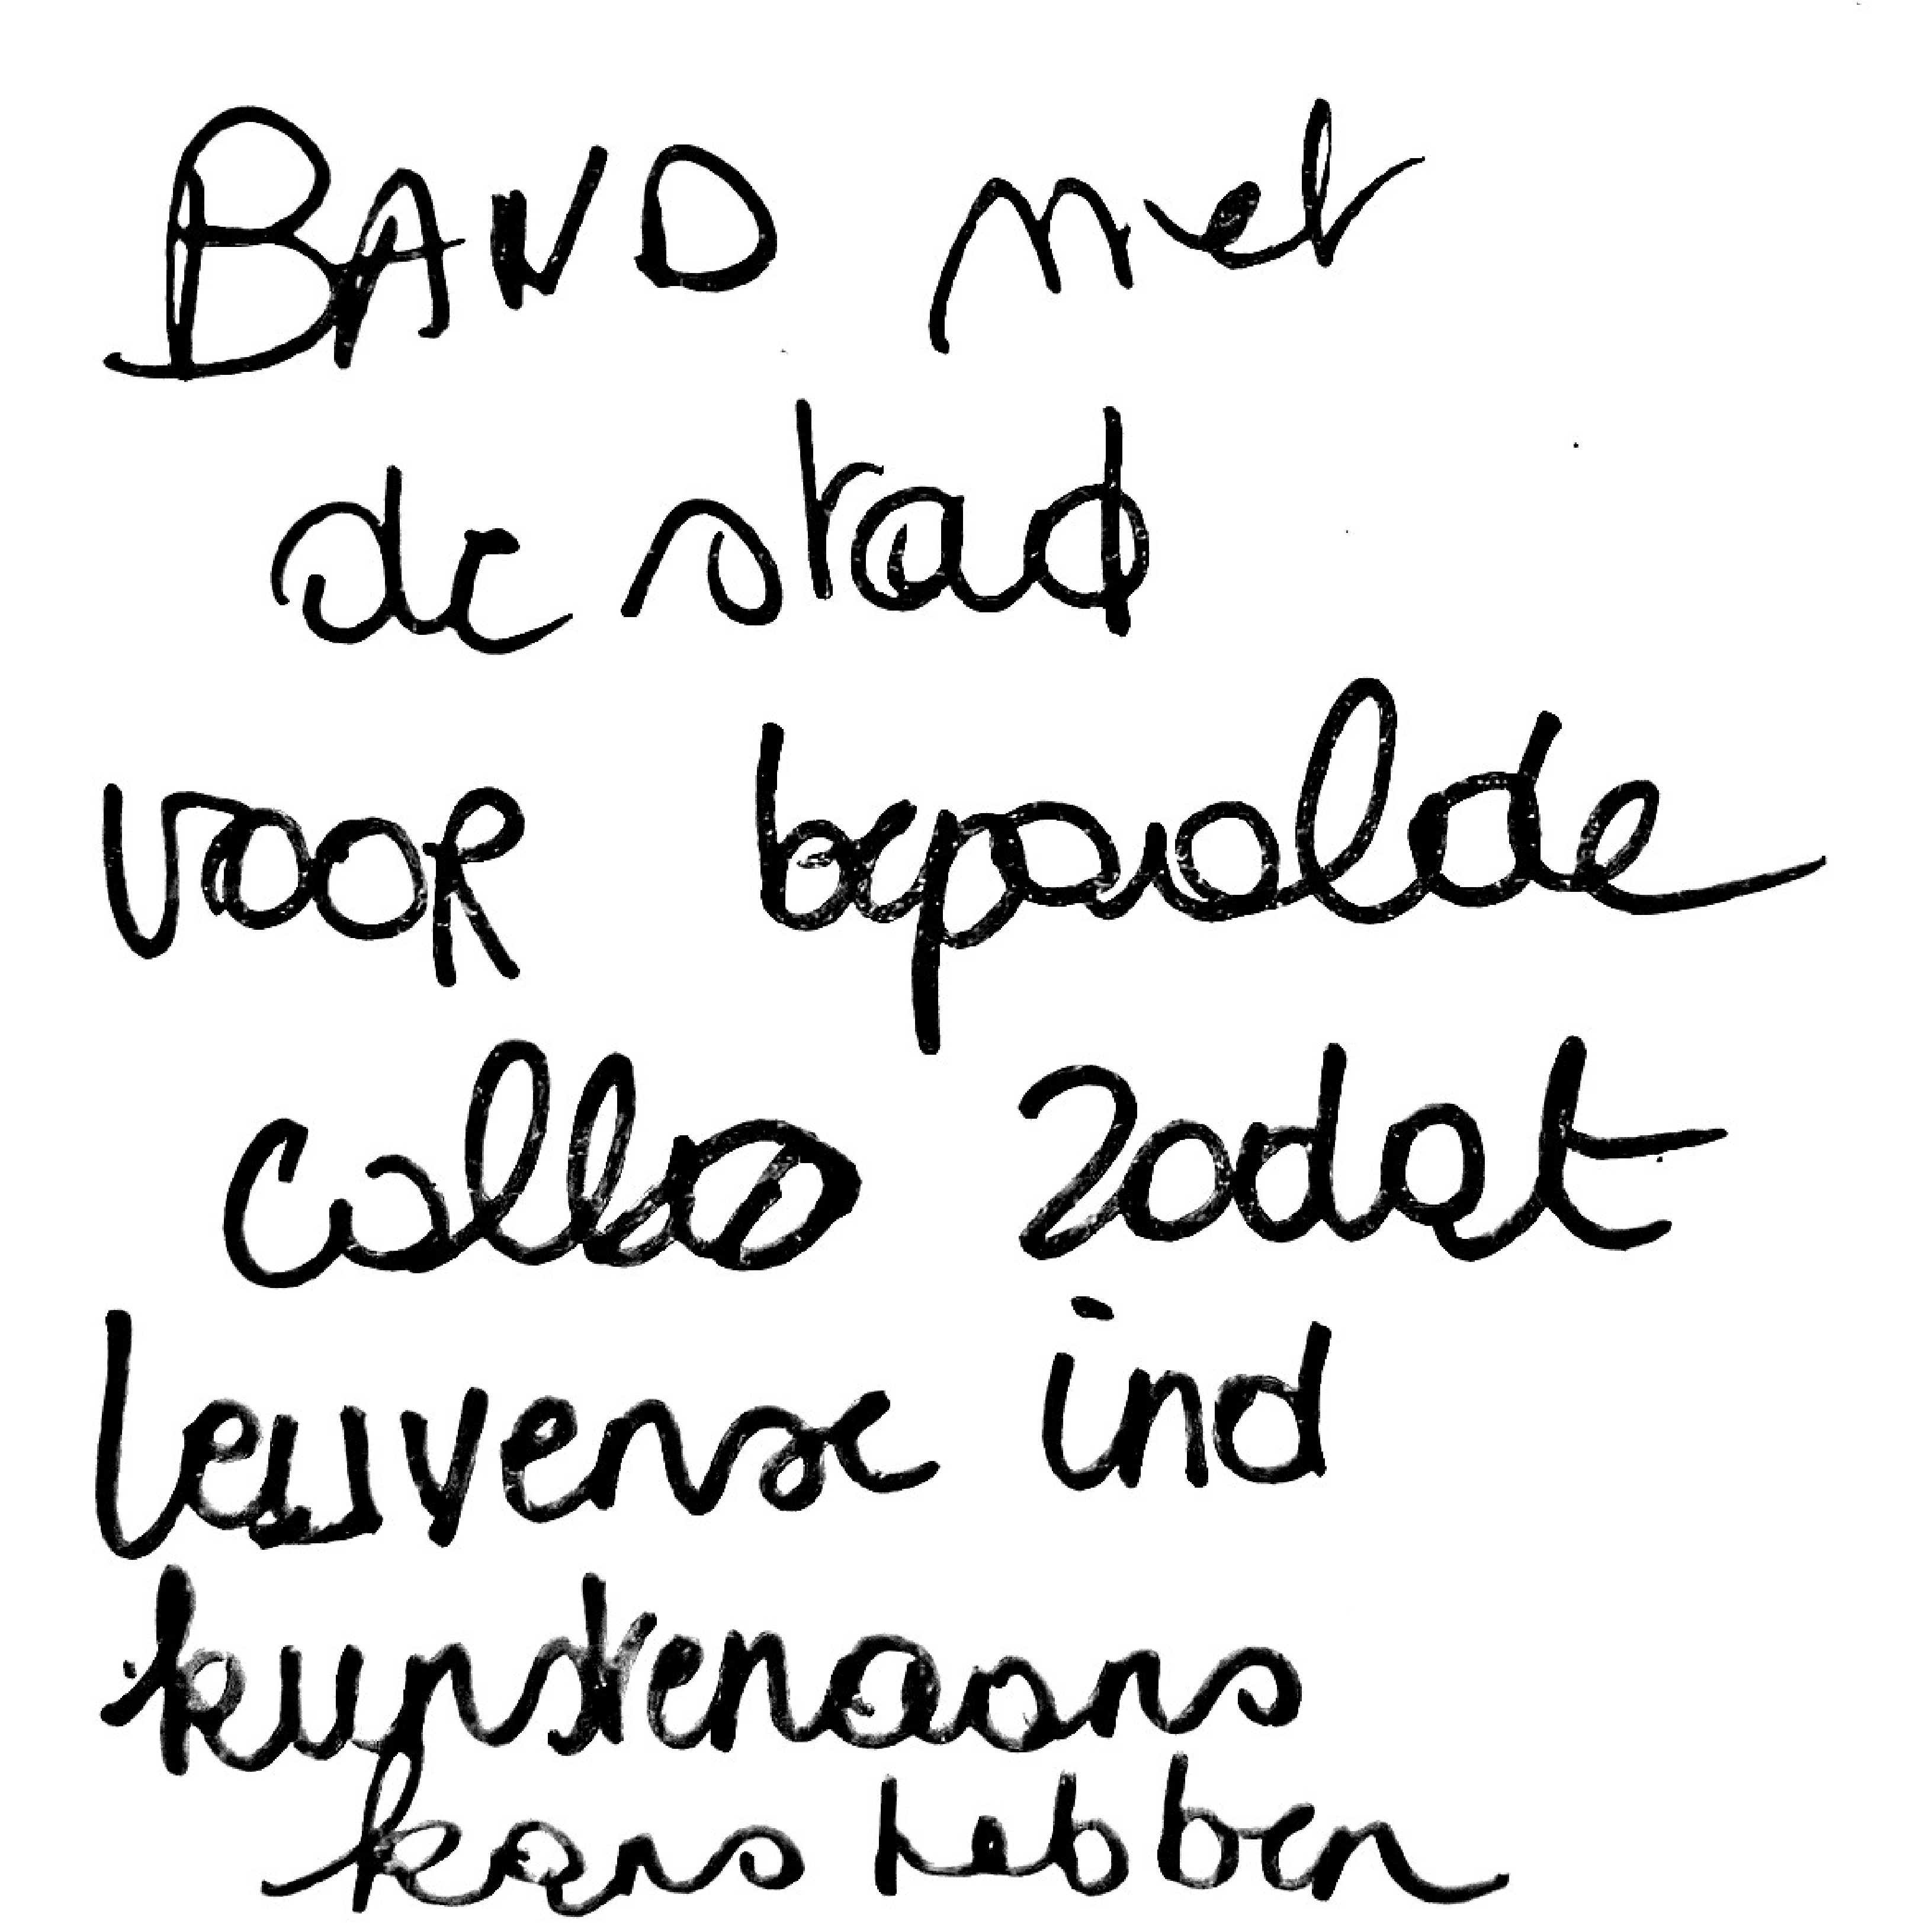 BAND met
de stad
voor bepaalde
collab zodat
leuvense ind
kunstenaars
kans hebben